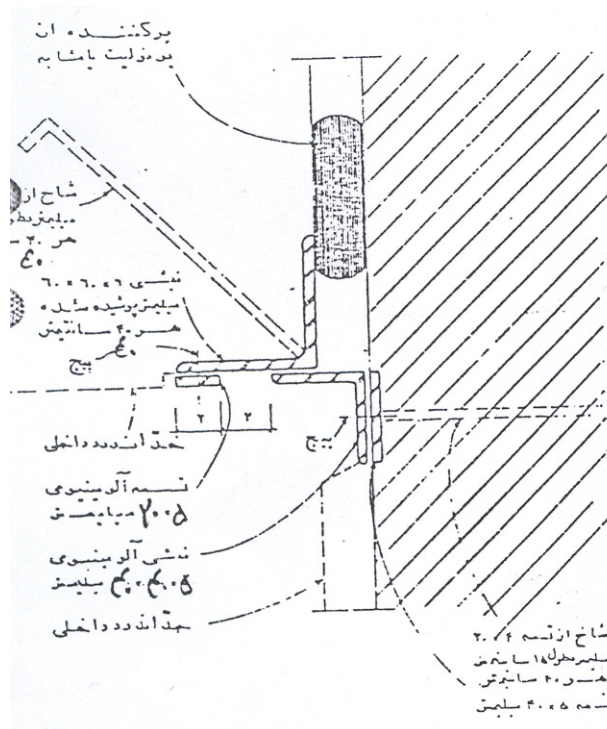 پرکننده از
یونولیت یا مشابه
شاخ از
میلیمتر بطو
هر ۴۰ س
نبشی ۶ × ۶۰ × ۶۰
میلیمتر پوشیده شده
هر ۴۰ سانتیمتر
پیچ
۲ ۲
پیچ
حد اندود داخلی
تسمه آلومینیومی
۲۰×۵ میلیمتر
نبشی آلومینیومی
۴۰×۴۰×۵ میلیمتر
حد اندود داخلی
شاخ از تسمه ۴ × ۳۰
میلیمتر بطول ۱۵ سانتیمتر
هر ۴۰ سانتیمتر
تسمه ۵ × ۴۰ میلیمتر